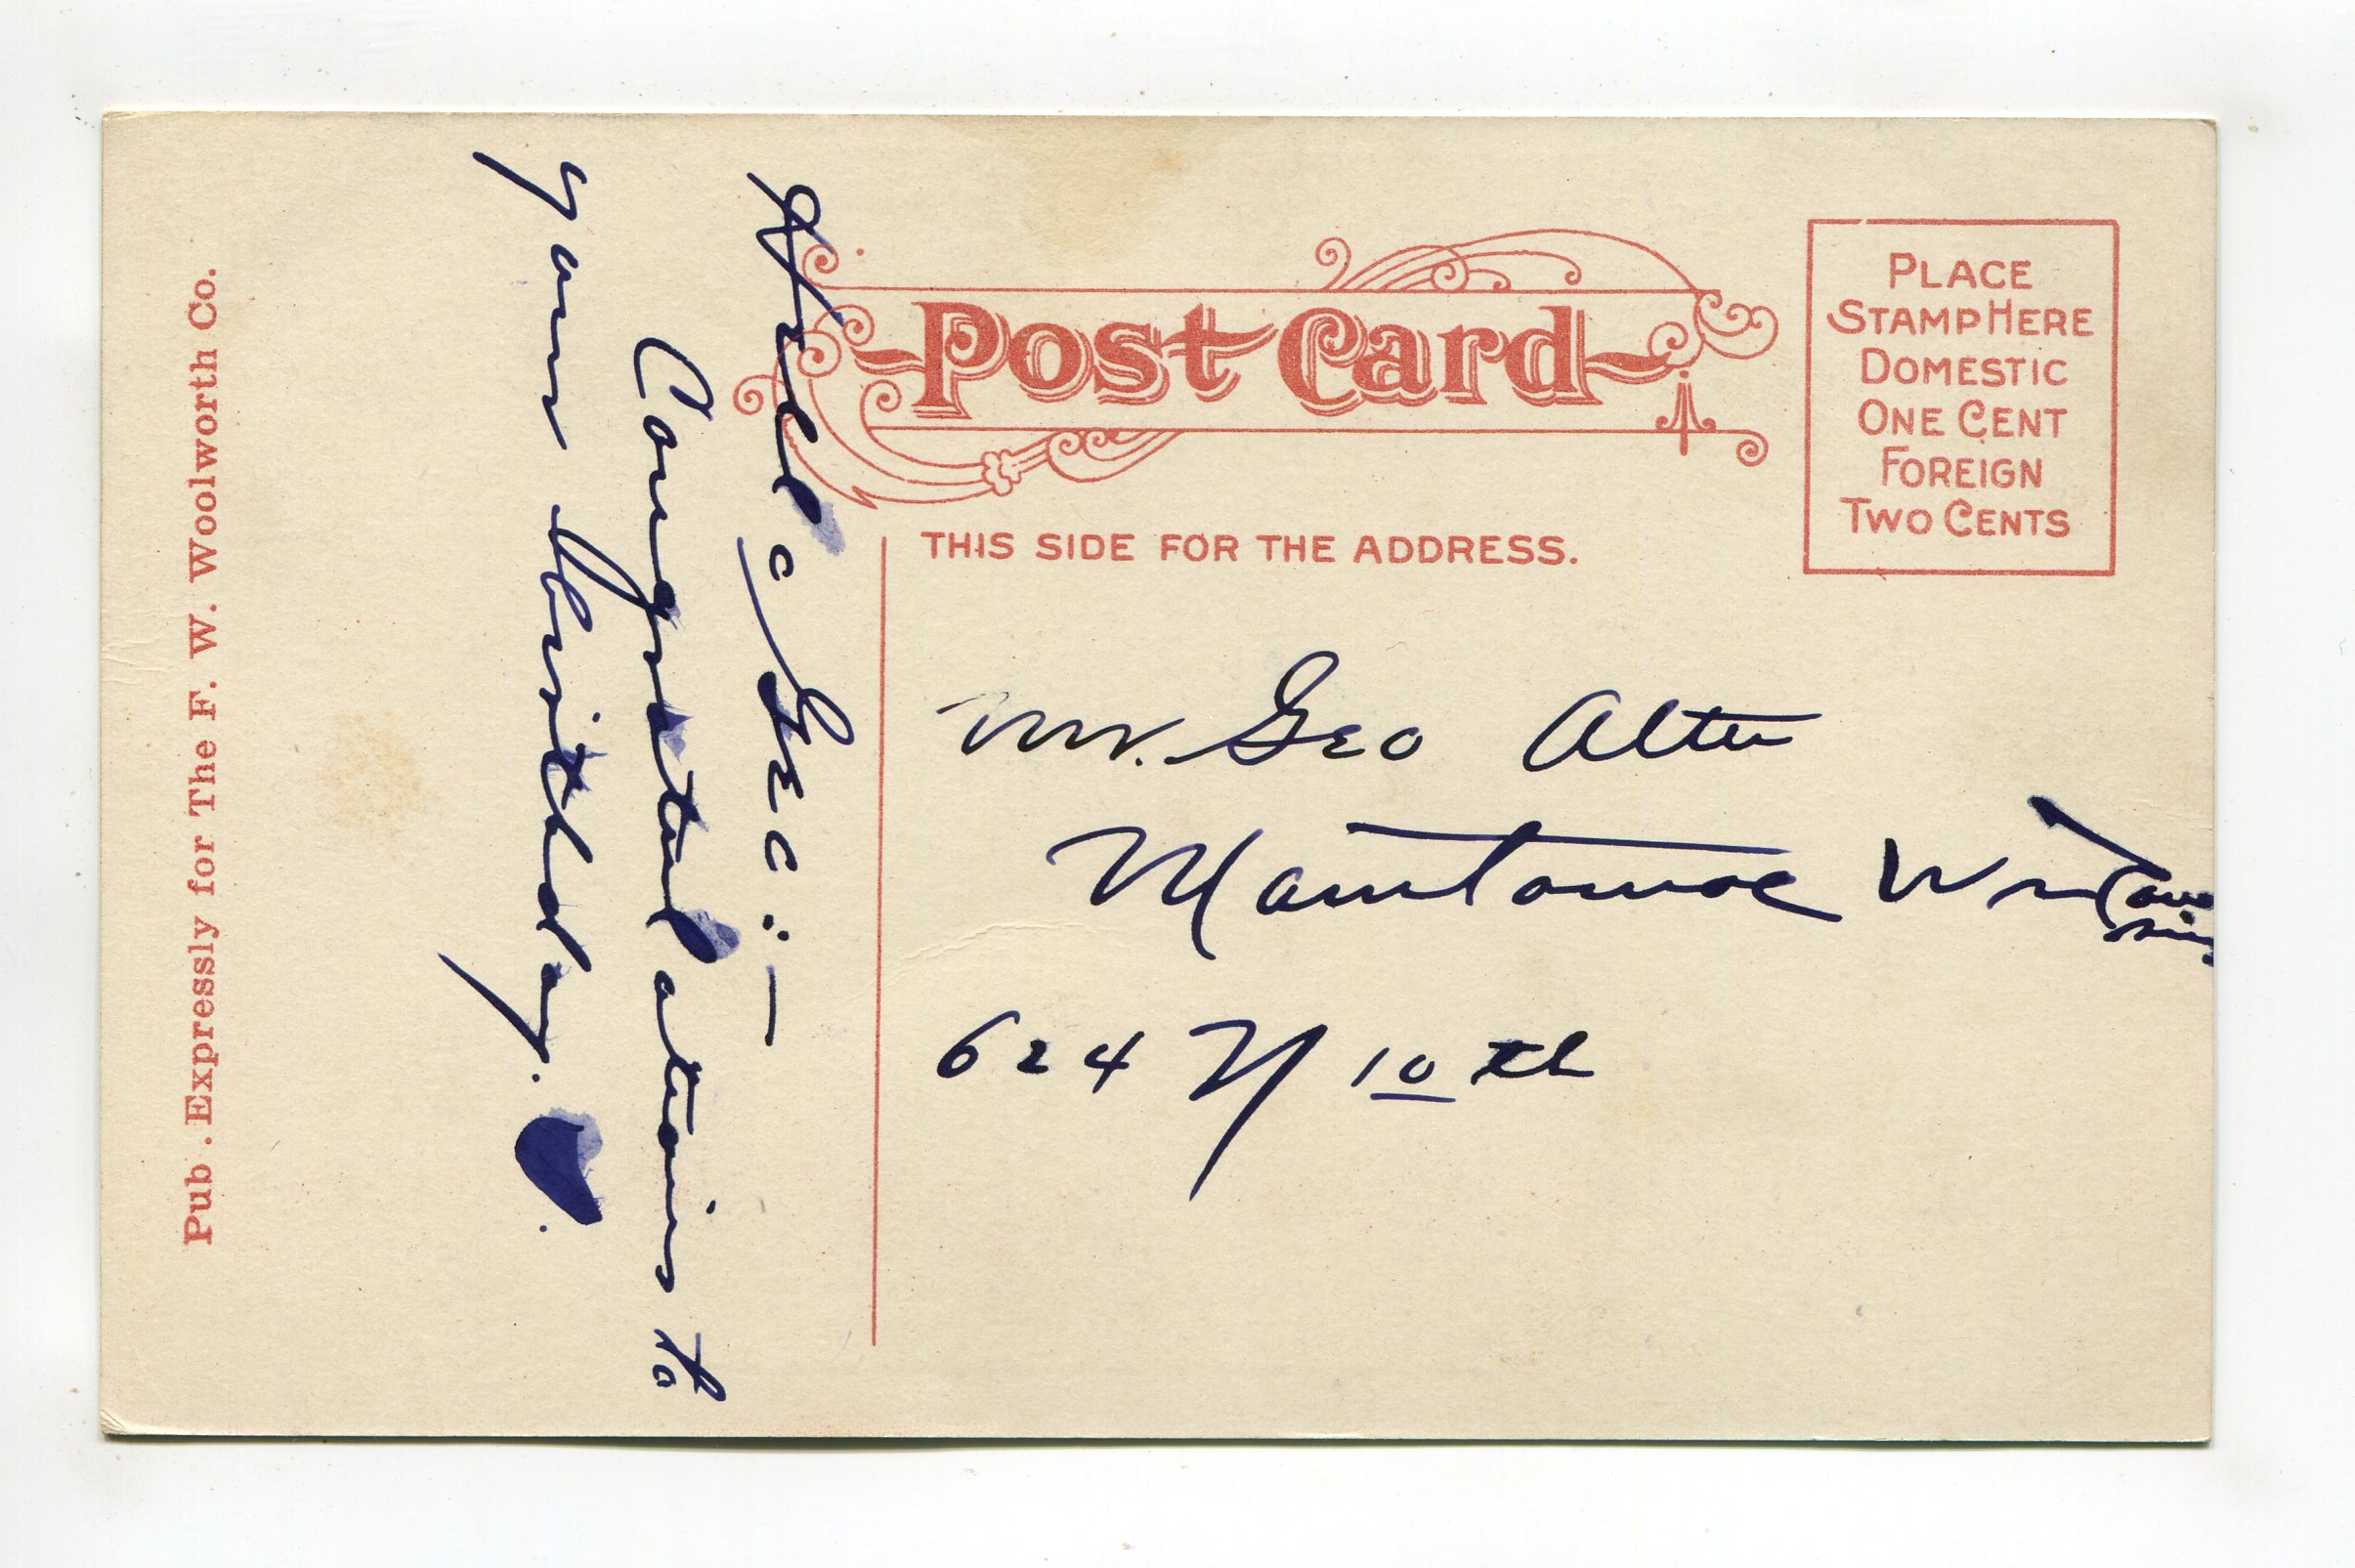 Pub. Expressly for The F. W. Woolworth Co.
Geo :—
Congratulations to
your birthday.
Post Card
THIS SIDE FOR THE ADDRESS.
PLACE
STAMP HERE
DOMESTIC
ONE CENT
FOREIGN
TWO CENTS
Mr. Geo Alter
Manitowoc Wis
624 N 10th